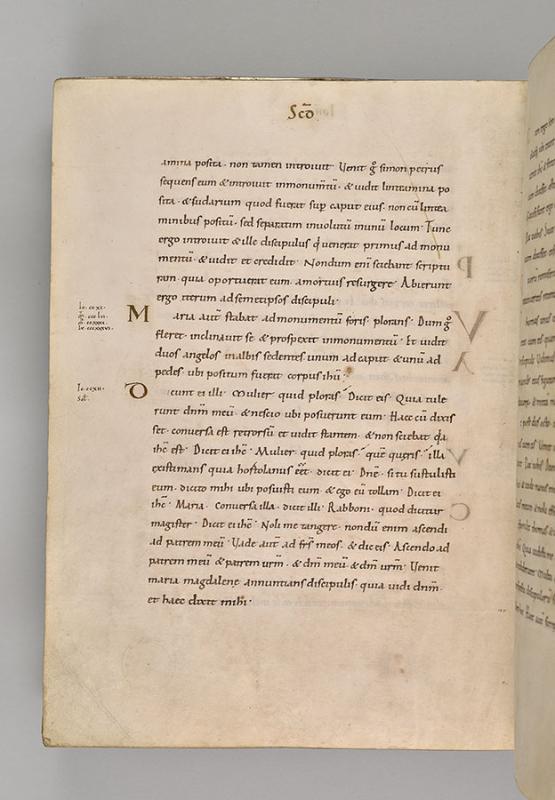 Scd̄
amina posita · non tamen introiuit · Venit g̊ simon petrus
sequens eum & introiuit in monumtū · & vidit linteamina po
sita · & sudarium quod fuerat sup caput eius · non cū lintea
minibus positū · sed separatim inuolutū in unū locum · Tunc
ergo introiuit & ille discipulus q̇ venerat primus ad monu
mentū · & vidit et credidit · Nondum enī sciebant scriptu
ram · quia oportuerat eum a mortuis resurgere · Abierunt
ergo iterum ad semetipsos discipuli ·
Maria aūt stabat ad monumentū foris plorans · Dum g̊
fleret · inclinauit se & prospexit in monumentū · Et vidit
duos angelos in albis sedentes · unum ad caput & unū ad
pedes · ubi positum fuerat corpus ihū ·
Dicunt ei illi · Mulier quid ploras · Dicit eis · Quia tule
runt dnm meū · & nescio ubi posuerunt eum · Haec cū dixis
set · conuersa est retrorsū et vidit stantem · & non sciebat q̄a
ihc̄ est · Dicit ei ihc̄ · Mulier quid ploras · quē queris · illa
existimans quia hortolanus eēt · dicit ei · Dnē · si tu sustulisti
eum · dicito mihi ubi posuisti eum · & ego eū tollam · Dicit ei
ihc̄ · Maria · Conuersa illa · dicit illi · Rabboni · quod dicitur
magister · Dicit ei ihc̄ · Noli me tangere · nondū enim ascendi
ad patrem meū · Vade aūt ad frs̄ meos · & dic eis · Ascendo ad
patrem meū & patrem urm̄ · & dm̄ meū · & dm̄ urm̄ · Venit
maria magdalene annuntians discipulis · quia vidi dnm̄ ·
et haec dixit mihi ·